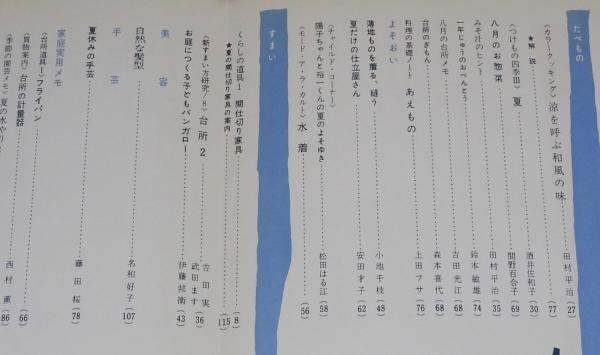 たべもの
〈カラークッキング〉涼を呼ぶ和風の味……田村平治(27)
★解説……(77)
〈つけもの四季Ⅲ〉夏……酒井佐和子(30)
八月のお惣菜……関野百合子(69)
みそ汁のヒント……田村平治(35)
一年じゅうのおべんとう……鈴木敏雄(74)
八月の台所メモ……吉田光江(68)
台所のぎもん……森本喜代(68)
料理の基礎ノート あえもの……上田フサ(76)
よそおい
薄地ものを着る、縫う……小池千枝(48)
夏だけの仕立屋さん……安田才子(62)
〈チャイルド・コーナー〉
陽子ちゃんと裕一くんの夏のよそゆき……松田はる江(58)
〈モード・ア・ラ・カルト〉水着……(56)
すまい
くらしの道具1 間仕切り家具……(8)
★夏の間仕切り家具の案内……(115)
〈新すまい方研究/8〉台所2……吉田実 武田ます(36)
お庭につくる子どもバンガロー……伊藤邦衛(43)
美容
自然な髪型……名和好子(107)
手芸
夏休みの手芸……藤田桜(78)
家庭実用メモ
〈台所道具1〉フライパン
〈買物案内〉台所の計量器……(66)
〈季節の園芸メモ〉夏の水やり……西村薫(86)